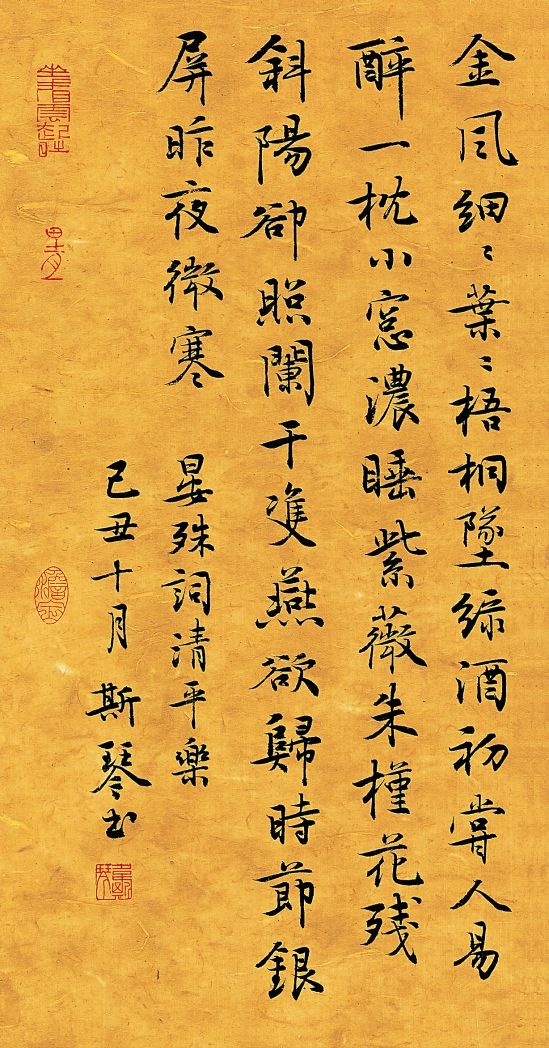 金風細〻葉〻梧桐墜綠酒初嘗人易
醉一枕小窓濃睡紫薇朱槿花残
斜陽卻照闌干雙燕欲歸時節銀
屏昨夜微寒 晏殊詞清平樂
己丑十月斯琴书